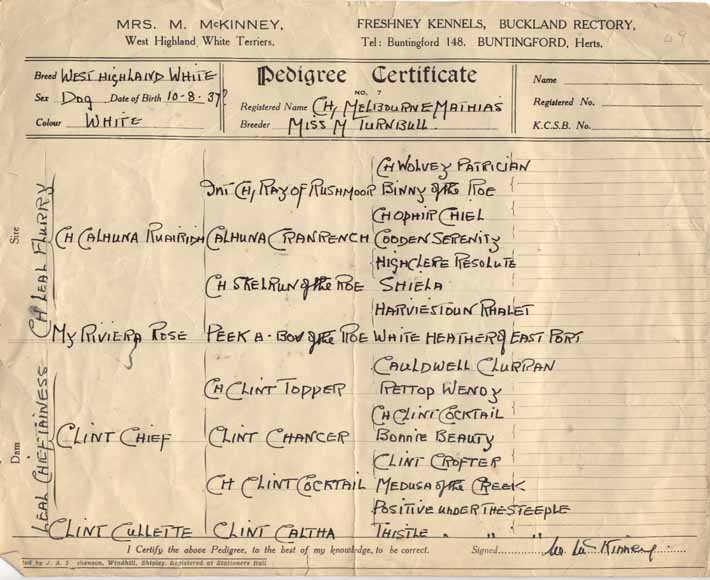 MRS. M. McKINNEY,
West Highland White Terriers.
FRESHNEY KENNELS, BUCKLAND RECTORY,
Tel: Buntingford 148. BUNTINGFORD, Herts.
49
Breed WEST HIGHLAND WHITE
Sex Dog Date of Birth 10-8-37?
Colour WHITE
Pedigree Certificate
NO. 7
Registered Name CH, MELBOURNE MATHIAS
Breeder MISS M TURNBULL
Name
Registered No.
K.C.S.B. No.
Sire
CH LEAL FLURRY
CH WOLVEY PATRICIAN
INT CH, RAY OF RUSHMOOR BINNY of the ROE
CH OPHIR CHIEL
CH CALHUNA RUAIRIDH CALHUNA CRANRENCH COODEN SERENITY
HIGHCLERE RESOLUTE
CH SKELRUN of the ROE SHIELA
HARVIESTOUN RHALET
My RIVIERA ROSE PEEK A-BOV of the ROE WHITE HEATHER of EAST PORT
Dam
LEAL CHIEFTAINESS
CAULDWELL CLURRAN
CH CLINT TOPPER RETTOP WENDY
CH CLINT COCKTAIL
CLINT CHIEF CLINT CHANCER BONNIE BEAUTY
CLINT CROFTER
CH CLINT COCKTAIL MEDUSA of the CREEK
POSITIVE UNDER THE STEEPLE
CLINT CULLETTE CLINT CALTHA THISTLE " " "
I Certify the above Pedigree, to the best of my knowledge, to be correct. Signed M. McKinney
by J. A. Windhill, Shipley. Registered at Stationers Hall